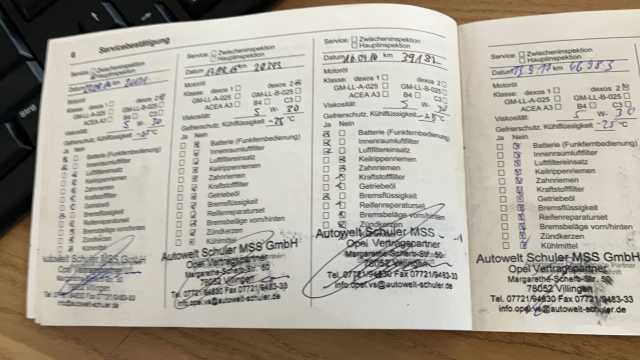 6 Servicebestätigung
Service: Zwischeninspektion
Hauptinspektion
Datum km
Motoröl
Klasse: dexos 1 dexos 2
GM-LL-A-025 GM-LL-B-025
ACEA A3 B4 C3
Viskosität: 5 W- 30
Gefrierschutz, Kühlflüssigkeit °C
Ja Nein
Batterie (Funkfernbedienung)
Innenraumluftfilter
Luftfiltereinsatz
Keilrippenriemen
Zahnriemen
Kraftstofffilter
Getriebeöl
Bremsflüssigkeit
Reifenreparaturset
Bremsbeläge vorn/hinten
Zündkerzen
Kühlmittel
Autowelt Schuler MSS GmbH
Opel Vertragspartner
Margarethe-Scherb-Str. 50
78052 Villingen
Tel. 07721/94630 Fax 07721/9463-33
Service: Zwischeninspektion
Hauptinspektion
Datum km 20393
Motoröl
Klasse: dexos 1 dexos 2
GM-LL-A-025 GM-LL-B-025
ACEA A3 B4 C3
Viskosität: 5 W- 30
Gefrierschutz, Kühlflüssigkeit -25 °C
Ja Nein
Batterie (Funkfernbedienung)
Innenraumluftfilter
Luftfiltereinsatz
Keilrippenriemen
Zahnriemen
Kraftstofffilter
Getriebeöl
Bremsflüssigkeit
Reifenreparaturset
Bremsbeläge vorn/hinten
Zündkerzen
Kühlmittel
Autowelt Schuler MSS GmbH
Opel Vertragspartner
Margarethe-Scherb-Str. 50
78052 Villingen
Tel. 07721/94630 Fax 07721/9463-33
info.opel.vs@autowelt-schuler.de
Service: Zwischeninspektion
Hauptinspektion
Datum km
Motoröl
Klasse: dexos 1 dexos 2
GM-LL-A-025 GM-LL-B-025
ACEA A3 B4 C3
Viskosität: 5 W- 30
Gefrierschutz, Kühlflüssigkeit °C
Ja Nein
Batterie (Funkfernbedienung)
Innenraumluftfilter
Luftfiltereinsatz
Keilrippenriemen
Zahnriemen
Kraftstofffilter
Getriebeöl
Bremsflüssigkeit
Reifenreparaturset
Bremsbeläge vorn/hinten
Zündkerzen
Autowelt Schuler MSS GmbH
Opel Vertragspartner
Margarethe-Scherb-Str. 50
78052 Villingen
Tel. 07721/94630 Fax 07721/9463-33
info.opel.vs@autowelt-schuler.de
Service: Zwischeninspektion
Hauptinspektion
Datum km 46983
Motoröl
Klasse: dexos 1 dexos 2
GM-LL-A-025 GM-LL-B-025
ACEA A3 B4 C3
Viskosität: 5 W- 30
Gefrierschutz, Kühlflüssigkeit -25 °C
Ja Nein
Batterie (Funkfernbedienung)
Innenraumluftfilter
Luftfiltereinsatz
Keilrippenriemen
Zahnriemen
Kraftstofffilter
Getriebeöl
Bremsflüssigkeit
Reifenreparaturset
Bremsbeläge vorn/hinten
Zündkerzen
Kühlmittel
Autowelt Schuler MSS GmbH
Opel Vertragspartner
Margarethe-Scherb-Str. 50
78052 Villingen
Tel. 07721/94630 Fax 07721/9463-33
info.opel.vs@autowelt-schuler.de